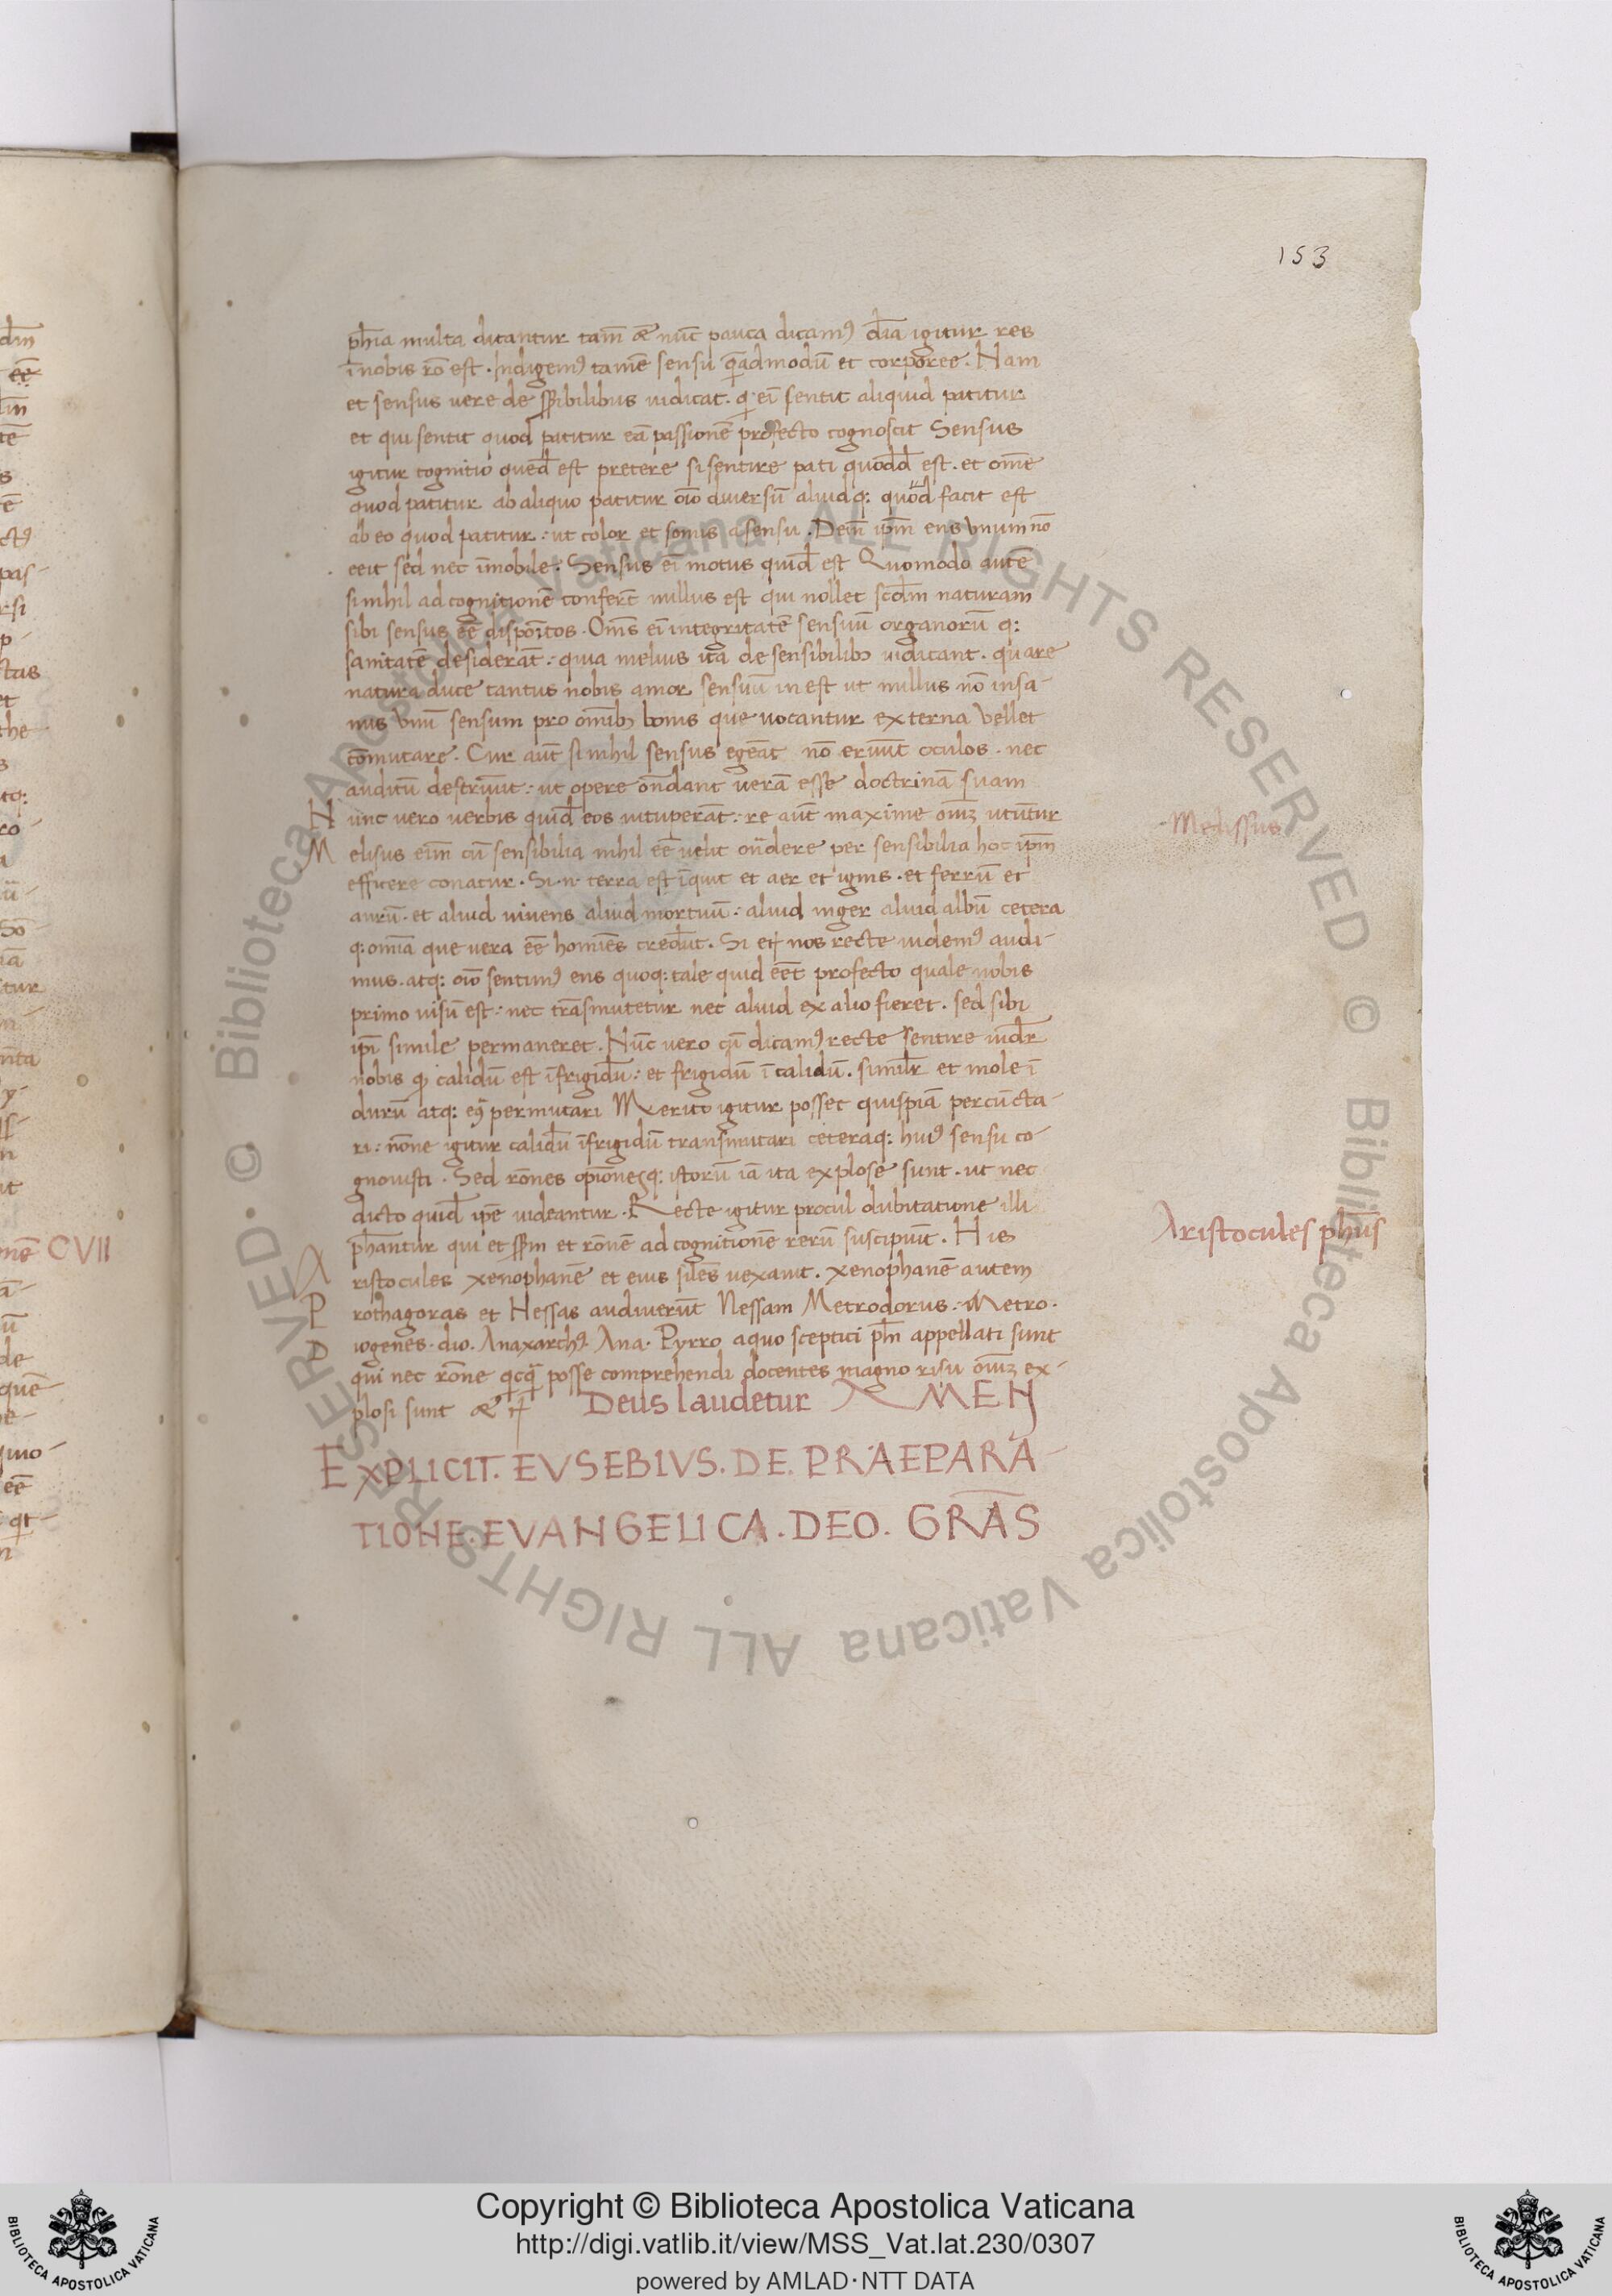 153
ph̅ia multa dicantur tam̅ & nu̅c pauca dicamꝰ d̅ia igitur res
i̅nobis ro̅ est . Indigemꝰ tame̅ sensu que̅admodu̅ et corpore . Nam
et sensus vere de sensibilibus iudicat . q ei̅ sentit aliquid patitur
et qui sentit quod patitur ea̅ passione̅ profecto cognoscit Sensus
igitur cognitio qued̅ est preterea si sentire pati quodd̅ est . et om̅e
quod patitur ab aliquo patitur oi̅o diuersu̅ aliudq: quod facit est
ab eo quod patitur : ut color et sonus a sensu . Dein̅ ipm̅ ens vnum no̅
eeit sed nec i̅mobile . Sensus ei̅ motus quid̅ est Quomodo aute̅
si nihil ad cognitione̅ confere̅t nullus est qui nollet scd̅m naturam
sibi sensus ee̅ dispositos . Om̅s ei̅ integritate̅ sensuu̅ organoru̅ q:
sanitate̅ desidera̅t : quia melius ita de sensibilibꝫ iudicant . quare
natura duce tantus nobis amor sensuu̅ inest ut nullus no̅ insa-
nus vnu̅ sensum pro om̅ibꝫ bonis que uocantur externa vellet
co̅mutare . Cur aut̅ si nihil sensus egea̅t no̅ eruu̅t oculos . nec
auditu̅ destruu̅t : ut opere on̅dant vera̅ esse doctrina̅ suam
Nunc vero verbis quid̅ eos uitupera̅t : re aut̅ maxime oi̅uꝫ utu̅tur
Melissus
Melisus eim̅ cu̅ sensibilia nihil ee̅ velit on̅dere per sensibilia hoc ipm̅
efficere conatur . Si .n. terra est i̅quit et aer et ignis . et ferru̅ et
auru̅ . et aliud uiuens aliud mortuu̅ : aliud niger aliud albu̅ cetera
q: omi̅a que vera ee̅ homie̅s credu̅t . Si et nos recte uidemꝰ audi-
mus . atq: oi̅o sentimꝰ ens quoq: tale quid ee̅t profecto quale nobis
primo uisu̅ est : nec tra̅smutetur nec aliud ex alio fieret . sed sibi
ipi̅ simile permaneret . Nu̅c vero cu̅ dicamꝰ recte sentire uid̅r
nobis qꝫ calidu̅ est i̅frigidu̅ : et frigidu̅ i̅ calidu̅ . simil̅r et mole i̅
duru̅ atq: permutari Merito igitur posset quispia̅ percu̅cta-
ri : no̅ne igitur calidu̅ i̅frigidu̅ transmutari ceteraq: huiꝰ sensu co-
gnouisti . Sed ro̅nes opio̅nesq: istoru̅ ia̅ ita explose sunt . ut nec
dicto quid̅ ipe̅ uideantur . Recte igitur procul dubitatione illi
Aristocules phu̅s
ph̅antur qui et et ro̅ne̅ ad cognitione̅ reru̅ suscipiu̅t . His
Aristocules xenophane̅ et eius uexauit . xenophane̅ autem
Prothagoras et Nessas audiueru̅t Nessam Metrodorus . Metro .
Diogenes . dio . Anaxarchꝰ . Ana . Pyrro a quo sceptici ph̅i appellati sunt
qui nec ro̅ne posse comprehendi docentes magno risu oi̅uꝫ ex-
plosi sunt & Deus laudetur AMEN
EXPLICIT . EVSEBIVS . DE . PRAEPARA-
TIONE . EVANGELICA . DEO . GRA̅S
CVII
Copyright © Biblioteca Apostolica Vaticana
http://digi.vatlib.it/view/MSS_Vat.lat.230/0307
powered by AMLAD·NTT DATA
BIBLIOTECA APOSTOLICA VATICANA
BIBLIOTECA APOSTOLICA VATICANA
© Biblioteca Apostolica Vaticana ALL RIGHTS RESERVED
© Biblioteca Apostolica Vaticana ALL RIGHTS RESERVED